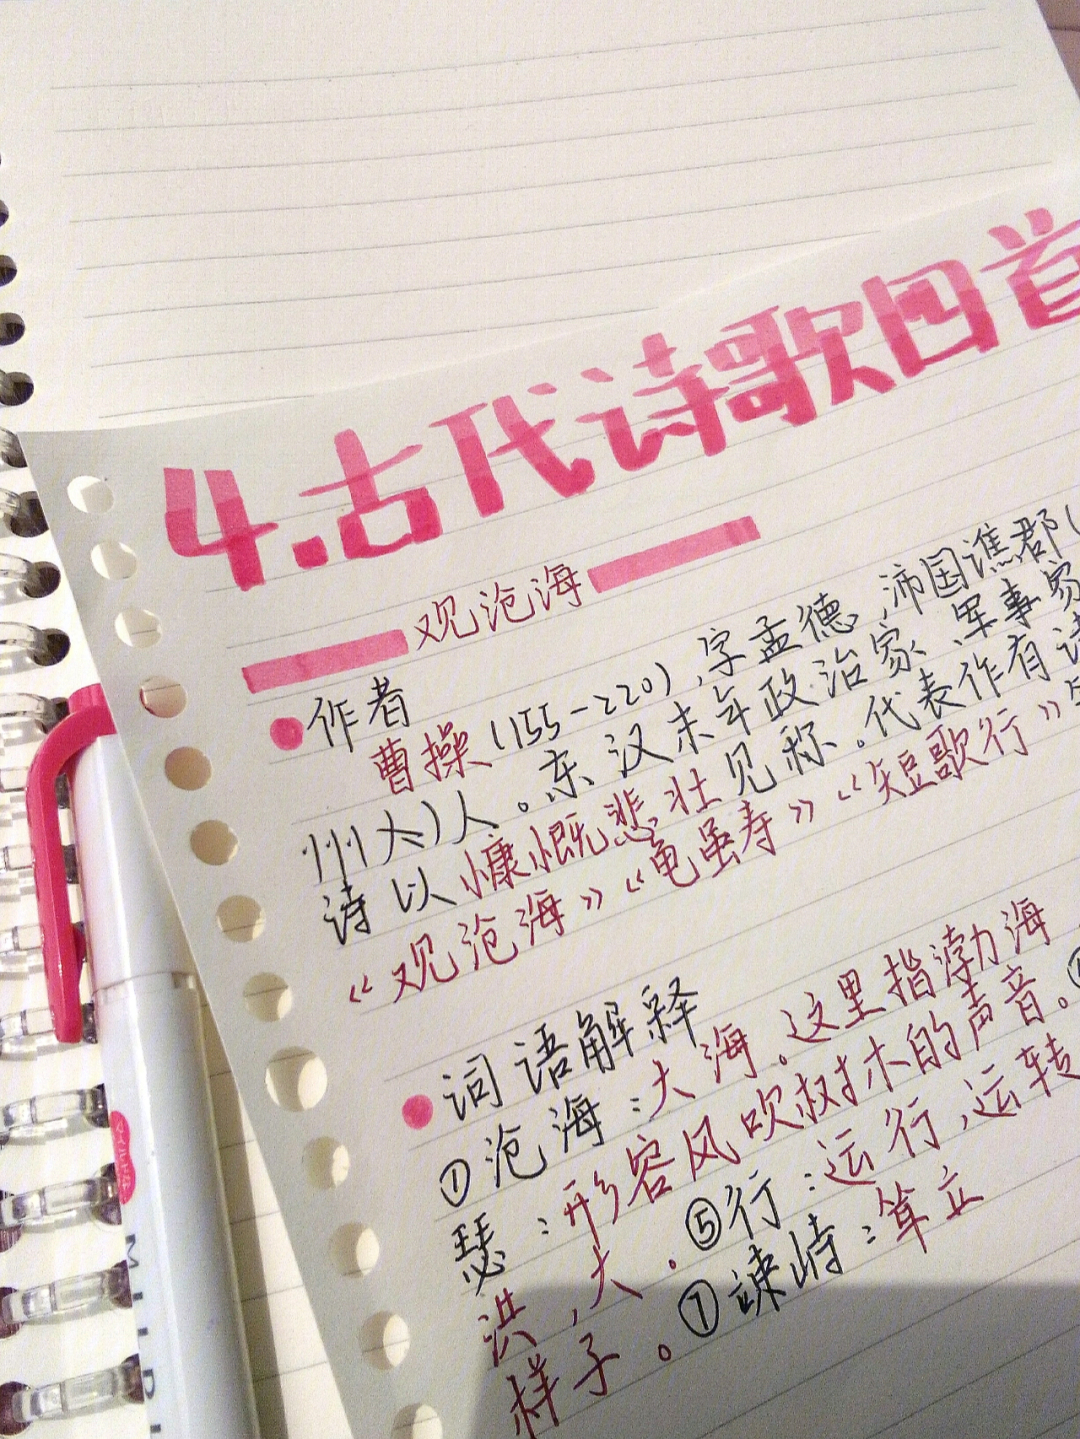 4.古代诗歌四首
观沧海
作者
曹操(155-220),字孟德,沛国谯郡(
州人)人。东汉末年政治家、军事家
诗以慷慨悲壮见称。代表作有诗
《观沧海》《龟虽寿》《短歌行》
词语解释
①沧海:大海。这里指渤海
瑟:形容风吹树木的声音。
洪,大.⑤行:运行,运转
样子。⑦竦峙:耸立
MIDI